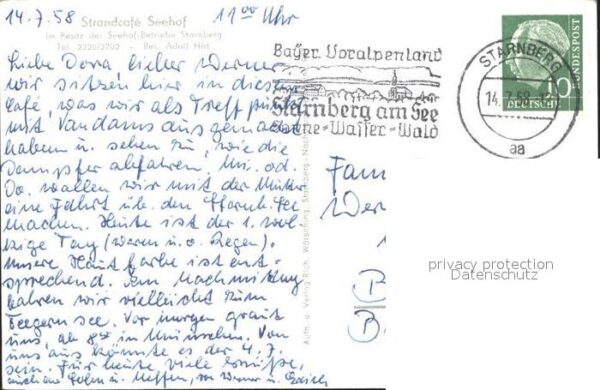 14.7.58 11⁰⁰ Uhr
Strandcafé Seehof
im Besitz der Seehof-Betriebe Starnberg
Tel. 2220/2702 - Bes. Adolf Hirt
Liebe Dora, lieber Werner,
wir sitzen hier in diesem
Café, was wir als Treffpunkt
mit Vandams ausgemacht
haben u. sehen zu, wie die
Dampfer abfahren. Mi. od.
Do. wollen wir mit der Mutter
eine Fahrt üb. den Starnb. See
machen. Heute ist der 1. wol-
kige Tag (warm u. o. Regen).
Unsere Hautfarbe ist ent-
sprechend. Am Nachmittag
fahren wir vielleicht zum
Tegernsee. Vor morgen graut
uns, ab 8⁰⁰ in München. Von
uns aus könnte es der 4.7.
sein. Für heute viele Grüße,
auch an Sohn u. Neffen, von Werner u.
Bayer. Voralpenland
Starnberg am See
Sonne-Wasser-Wald
STARNBERG
14.7.58
aa
10
DEUTSCHE
BUNDESPOST
Aufn. u. Verlag Rich. Wörsching, Starnberg
Fam
Wer
B
B
privacy protection
Datenschutz